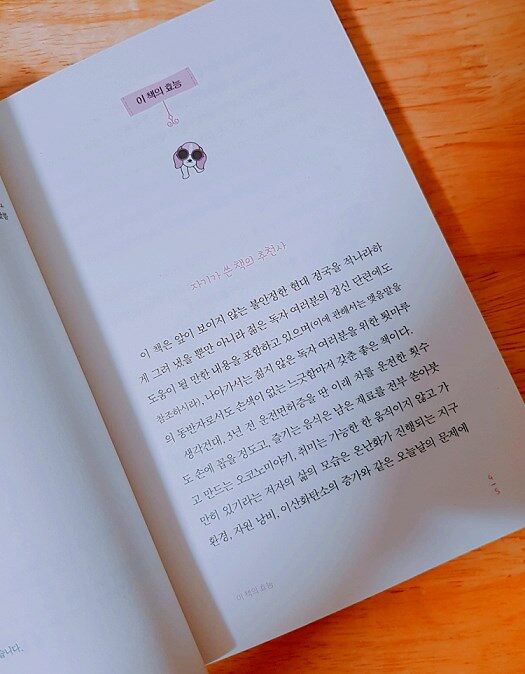 이 책의 효능
자기가 쓴 책의 추천사
이 책은 앞이 보이지 않는 불안정한 현대 정국을 적나라하
게 그려 냈을 뿐만 아니라 젊은 독자 여러분의 정신 단련에도
도움이 될 만한 내용을 포함하고 있으며(이에 관해서는 맺음말을
참조하시라), 나아가서는 젊지 않은 독자 여러분을 위한 툇마루
의 동반자로서도 손색이 없는 느긋함마저 갖춘 좋은 책이다.
생각건대, 3년 전 운전면허증을 딴 이래 차를 운전한 횟수
도 손에 꼽을 정도고, 즐기는 음식은 남은 재료를 전부 쏟아붓
고 만드는 오코노미야키, 취미는 가능한 한 움직이지 않고 가
만히 있기라는 저자의 삶의 모습은 온난화가 진행되는 지구
환경, 자원 낭비, 이산화탄소의 증가와 같은 오늘날의 문제에
이 책의 효능
4
5
습니다.